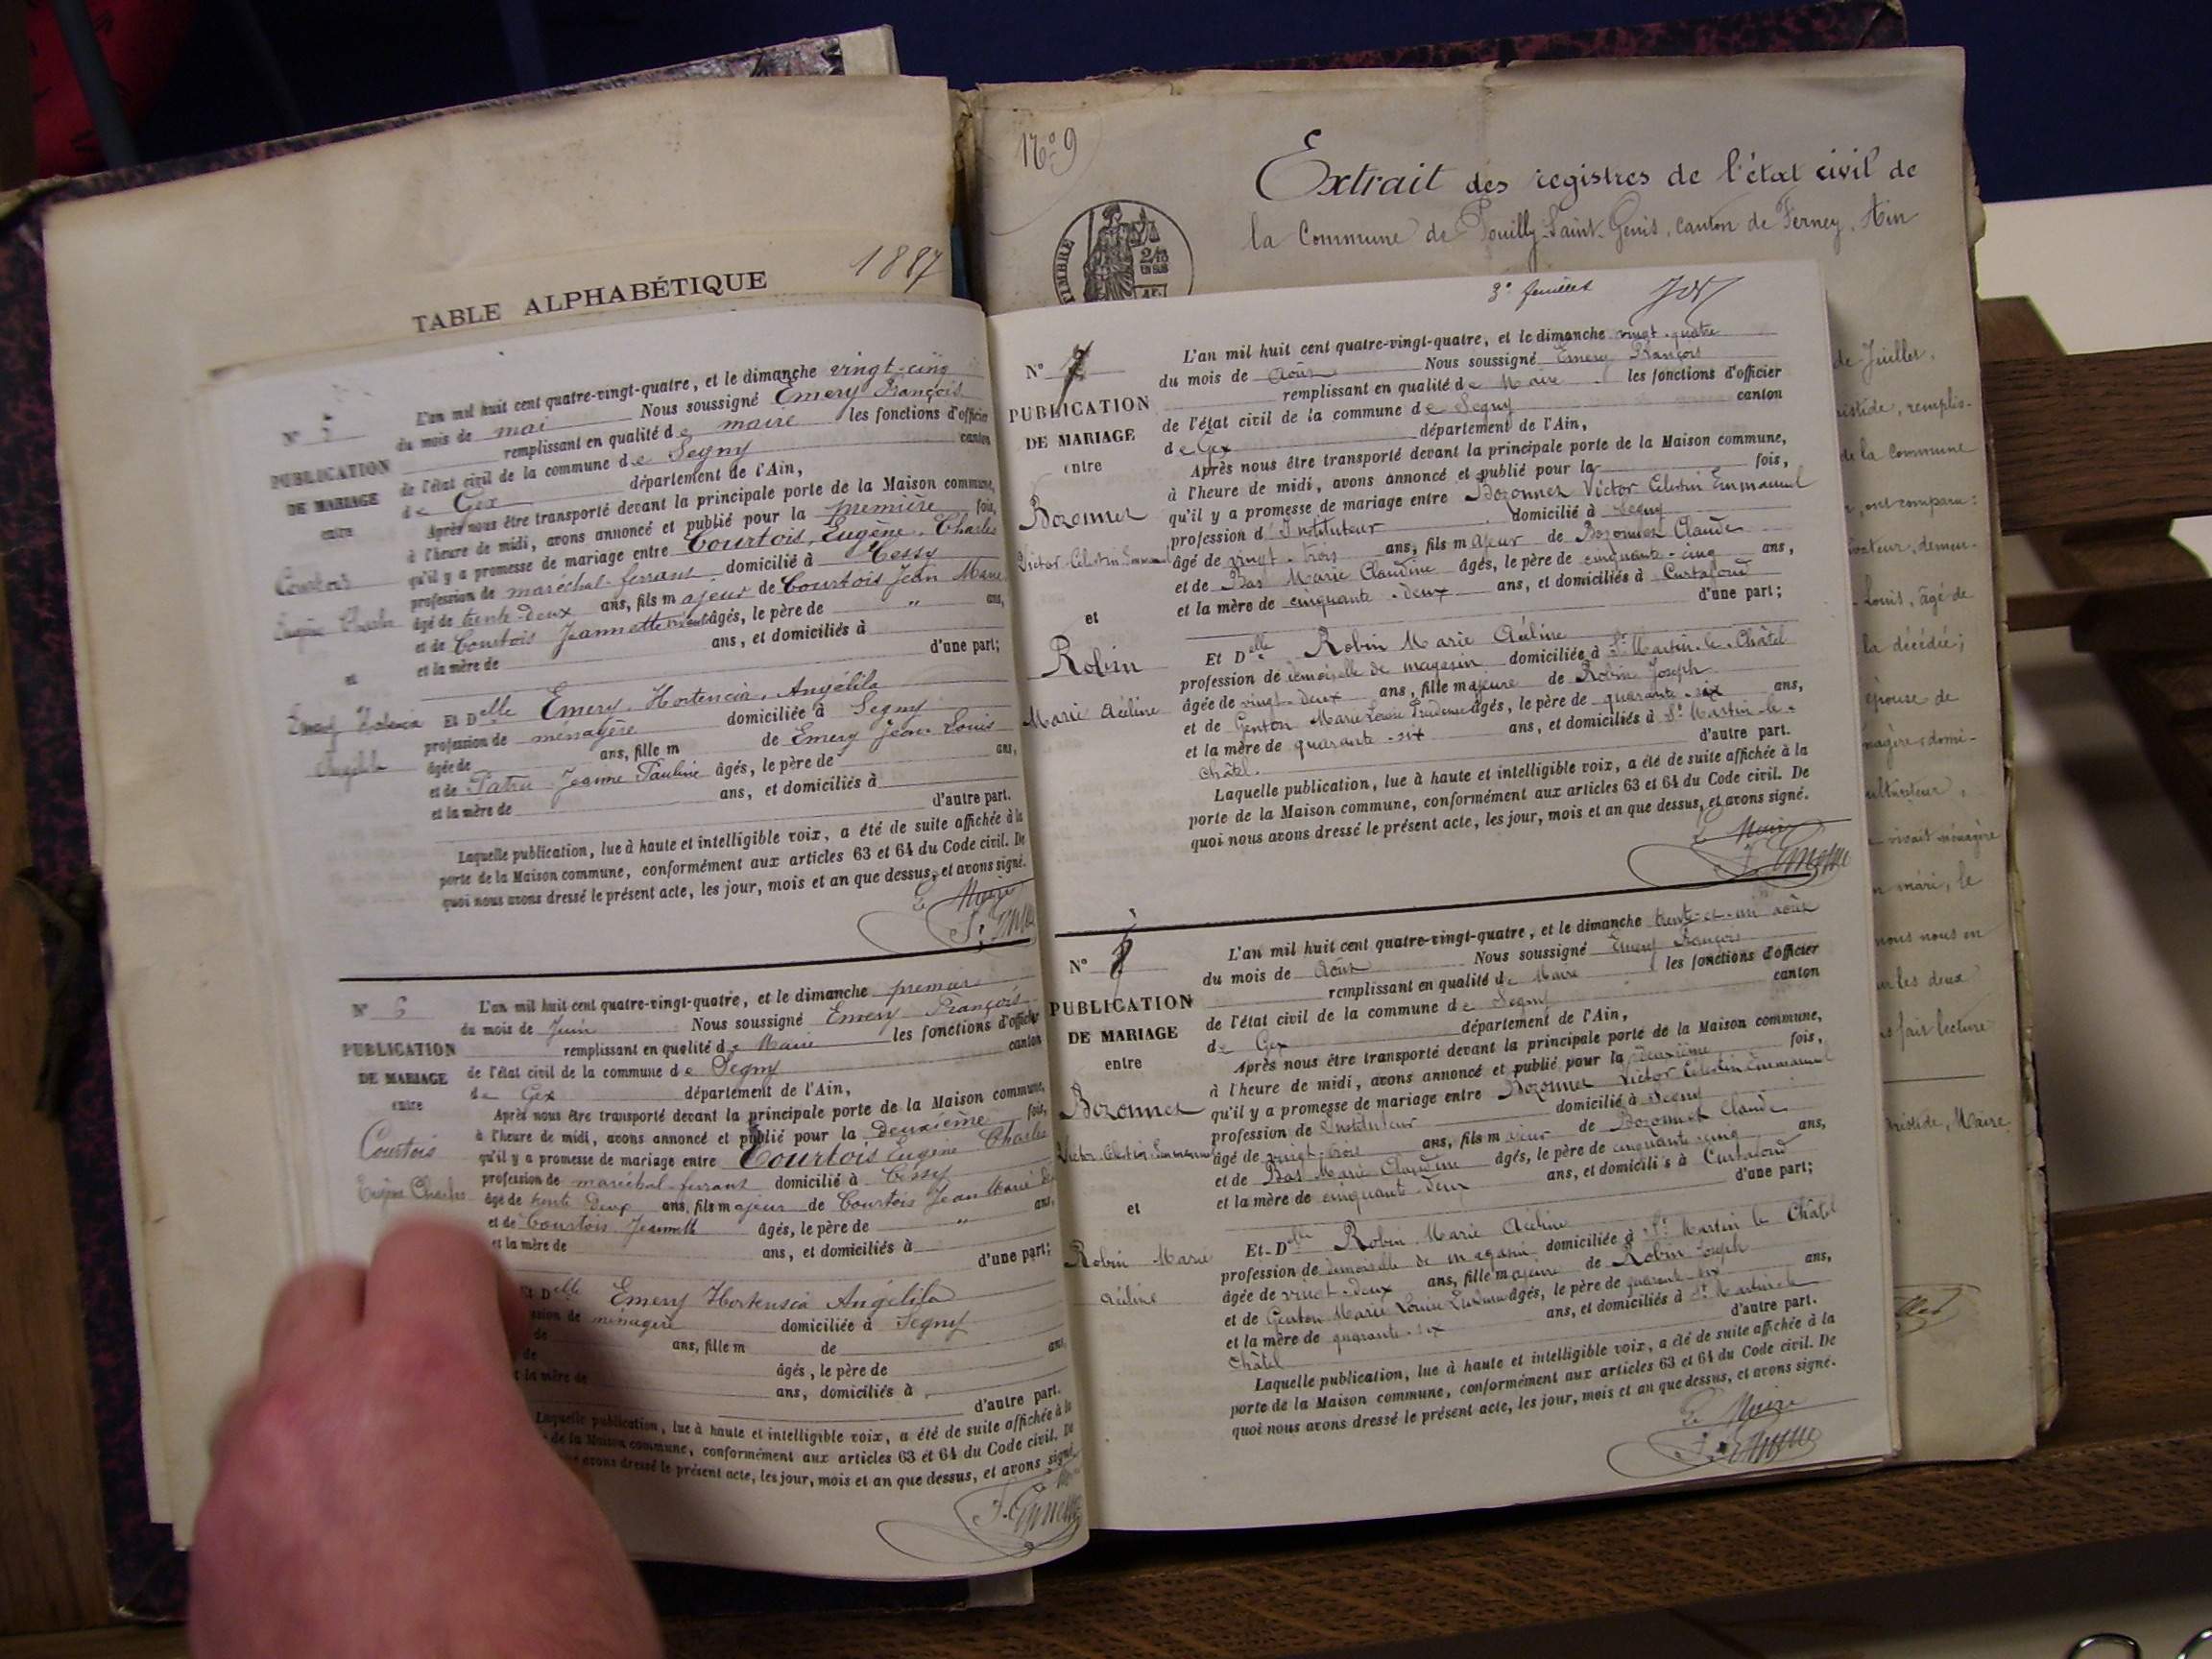 1887
TABLE ALPHABÉTIQUE
N° 5
PUBLICATION
DE MARIAGE
entre
Courtois
Eugène Charles
et
Emery Hortencia
Angélila
L'an mil huit cent quatre-vingt-quatre, et le dimanche vingt-cinq
du mois de mai Nous soussigné Emery François
remplissant en qualité de maire les fonctions d'officier
de l'état civil de la commune de Segny canton
de Gex département de l'Ain,
Après nous être transporté devant la principale porte de la Maison commune,
à l'heure de midi, avons annoncé et publié pour la première fois,
qu'il y a promesse de mariage entre Courtois, Eugène, Charles
profession de maréchal-ferrant domicilié à Cessy
âgé de trente-deux ans, fils majeur de Courtois Jean Marie
et de Courtois Jeannette âgés, le père de " ans,
et la mère de ans, et domiciliés à
d'une part;
Et Delle Emery, Hortencia, Angélila
profession de ménagère domiciliée à Segny
âgée de ans, fille m de Emery Jean Louis
et de Patru Jeanne Pauline âgés, le père de ans,
et la mère de ans, et domiciliés à
d'autre part.
Laquelle publication, lue à haute et intelligible voix, a été de suite affichée à la
porte de la Maison commune, conformément aux articles 63 et 64 du Code civil. De
quoi nous avons dressé le présent acte, les jour, mois et an que dessus, et avons signé.
Le Maire
N° 6
PUBLICATION
DE MARIAGE
entre
Courtois
Eugène Charles
L'an mil huit cent quatre-vingt-quatre, et le dimanche premier
du mois de Juin Nous soussigné Emery François
remplissant en qualité de Maire les fonctions d'officier
de l'état civil de la commune de Segny canton
de Gex département de l'Ain,
Après nous être transporté devant la principale porte de la Maison commune,
à l'heure de midi, avons annoncé et publié pour la deuxième fois,
qu'il y a promesse de mariage entre Courtois Eugène Charles
profession de maréchal-ferrant domicilié à Cessy
âgé de trente deux ans, fils majeur de Courtois Jean Marie
et de Courtois Jeannette âgés, le père de " ans,
et la mère de ans, et domiciliés à
d'une part;
Et Delle Emery Hortensia Angélila
ssion de ménagère domiciliée à Segny
de ans, fille m de
de âgés, le père de ans,
la mère de ans, domiciliés à
d'autre part.
Laquelle publication, lue à haute et intelligible voix, a été de suite affichée à la
de la Maison commune, conformément aux articles 63 et 64 du Code civil. De
avons dressé le présent acte, les jour, mois et an que dessus, et avons signé.
F. Emery
N° 9
Extrait des registres de l'état civil de
la Commune de Pouilly-Saint-Genis, canton de Ferney, Ain
TIMBRE
3e feuillet
N° 7
PUBLICATION
DE MARIAGE
entre
Bozonnet
Victor-Célestin-Emmanuel
et
Robin
Marie Acéline
L'an mil huit cent quatre-vingt-quatre, et le dimanche vingt-quatre
du mois de Août Nous soussigné Emery François
remplissant en qualité de Maire les fonctions d'officier
de l'état civil de la commune de Segny canton
de Gex département de l'Ain,
Après nous être transporté devant la principale porte de la Maison commune,
à l'heure de midi, avons annoncé et publié pour la fois,
qu'il y a promesse de mariage entre Bozonnet Victor Célestin Emmanuel
profession d'Instituteur domicilié à Segny
âgé de vingt-trois ans, fils majeur de Bozonnet Claude
et de Bas Marie Claudine âgés, le père de cinquante-cinq ans,
et la mère de cinquante-deux ans, et domiciliés à Curtafond
d'une part;
Et Delle Robin Marie Acéline
profession de demoiselle de magasin domiciliée à St Martin-le-Châtel
âgée de vingt-deux ans, fille majeure de Robin Joseph
et de Genton Marie Louise âgés, le père de quarante-six ans,
et la mère de quarante-six ans, et domiciliés à St Martin-le-
Châtel. d'autre part.
Laquelle publication, lue à haute et intelligible voix, a été de suite affichée à la
porte de la Maison commune, conformément aux articles 63 et 64 du Code civil. De
quoi nous avons dressé le présent acte, les jour, mois et an que dessus, et avons signé.
Le Maire
F. Emery
N° 8
PUBLICATION
DE MARIAGE
entre
Bozonnet
Victor-Célestin-Emmanuel
et
Robin Marie
Acéline
L'an mil huit cent quatre-vingt-quatre, et le dimanche trente-et-un août
du mois de Août Nous soussigné Emery François
remplissant en qualité de Maire les fonctions d'officier
de l'état civil de la commune de Segny canton
de Gex département de l'Ain,
Après nous être transporté devant la principale porte de la Maison commune,
à l'heure de midi, avons annoncé et publié pour la deuxième fois,
qu'il y a promesse de mariage entre Bozonnet Victor Célestin Emmanuel
profession de Instituteur domicilié à Segny
âgé de vingt-trois ans, fils majeur de Bozonnet Claude
et de Bas Marie Claudine âgés, le père de cinquante-cinq ans,
et la mère de cinquante-deux ans, et domiciliés à Curtafond
d'une part;
Et Delle Robin Marie Acéline
profession de demoiselle de magasin domiciliée à St Martin le Châtel
âgée de vingt-deux ans, fille majeure de Robin Joseph
et de Genton Marie Louise âgés, le père de quarante-six ans,
et la mère de quarante-six ans, et domiciliés à St Martin le
Châtel d'autre part.
Laquelle publication, lue à haute et intelligible voix, a été de suite affichée à la
porte de la Maison commune, conformément aux articles 63 et 64 du Code civil. De
quoi nous avons dressé le présent acte, les jour, mois et an que dessus, et avons signé.
Le Maire
F. Emery
de Juillet,
istide, remplis-
de la Commune
, ont comparu:
vateur, demeu-
Louis, âgé de
la décédée;
épouse de
nagère, domi-
cultivateur,
vivait ménagère
mari, le
nous nous en
les deux
fait lecture
Aristide, Maire